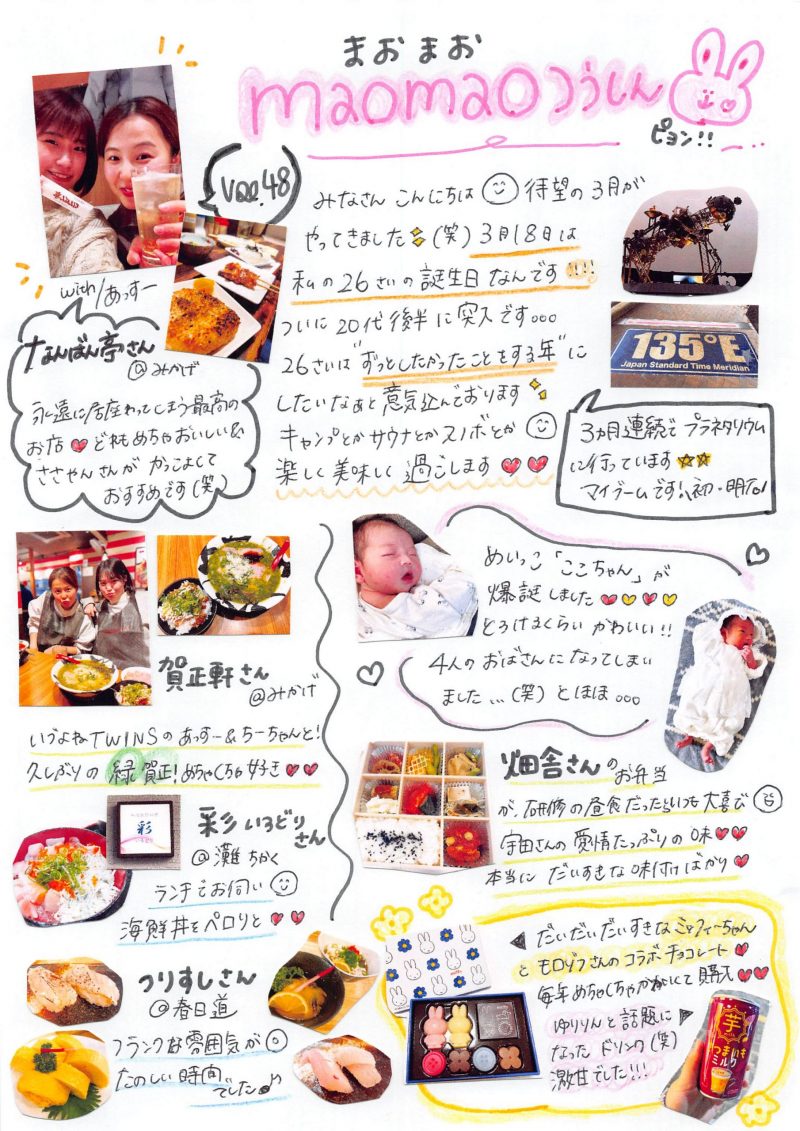 まおまお
maomaoつうしん
ピョン!!
Vol.48
みなさん こんにちは 待望の3月が
やってきました(笑) 3月18日は
私の26さいの誕生日なんです!!!!
ついに20代後半に突入です。。。
26さいは"ずっとしたかったことをする年"に
したいなぁと意気込んでおります
キャンプとかサウナとかスノボとか
楽しく美味しく過ごします
with/あっすー
なんばん亭さん
@みかげ
永遠に居座わってしまう最高の
お店 どれもめちゃおいしい&
ささやんさんが かっこよくて
おすすめです(笑)
135°E
Japan Standard Time Meridian
3ヵ月連続でプラネタリウム
に行っています
マイブームです! 初・明石!
賀正軒さん
@みかげ
いづよねTWINSのあっすー&ちーちゃんと!
久しぶりの緑賀正!めちゃくちゃ好き
めいっこ「ここちゃん」が
爆誕しました
とろけるくらい かわいい!!
4人のおばさんになってしまい
ました...(笑) とほほ。。。
彩
彩 いろどりさん
@灘ちかく
ランチでお伺い
海鮮丼をペロリと
畑舎さんのお弁当
が、研修の昼食だったらいつも大喜び
宇田さんの愛情たっぷりの味
本当に だいすきな味付けばかり
つりすしさん
@春日道
フランクな雰囲気が
たのしい時間でした♪
だいだいだいすきなミッフィーちゃん
とモロゾフさんのコラボチョコレート
毎年めちゃくちゃかわいくて購入
ゆりりんと話題に
なったドリンク(笑)
激甘でした!!!
芋